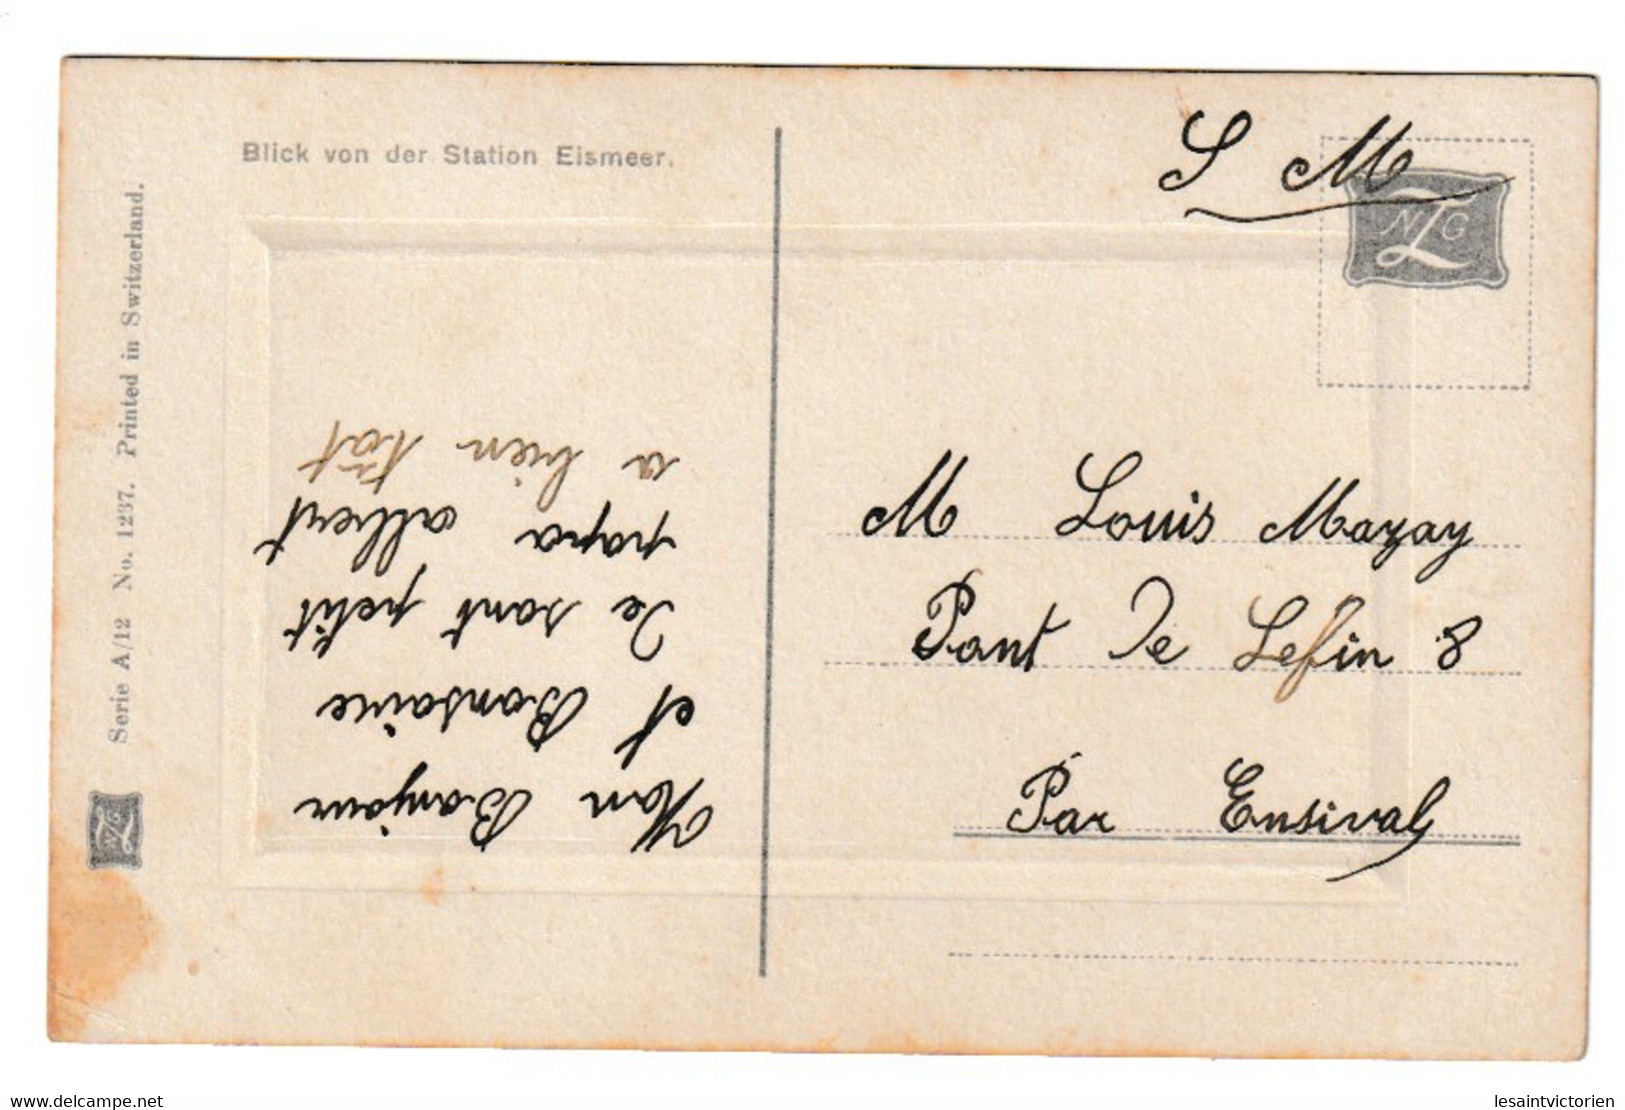 Blick von der Station Eismeer.
Serie A/12 No. 1237. Printed in Switzerland.
NZG
S M
NPG
Mon Bonjour
et Bonsoire
De sont petit
papa albert
a bien tot
M Louis Mazay
Pont De Lefin 8
Par Ensival
delcampe.net
lesaintvictorien